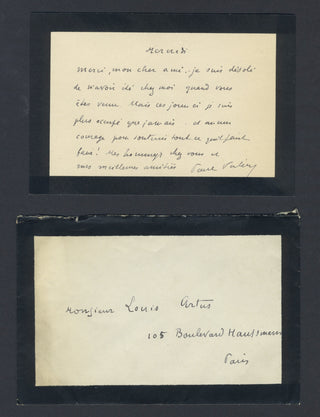 Mercredi
Merci, mon cher ami. je suis désolé
de n'avoir été chez moi quand vous
êtes venu. Mais ces jours-ci je suis
plus occupé que jamais. et aucun
courage pour soutenir tout ce qu'il faut
faire! Mes hommages chez vous et
mes meilleures amitiés Paul Valéry
Monsieur Louis Artus
105 Boulevard Haussmann
Paris